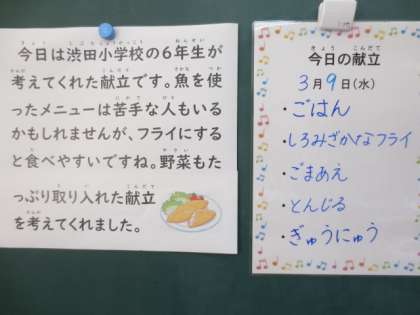 今日は渋田小学校の6年生が
考えてくれた献立です。魚を使
ったメニューは苦手な人もいる
かもしれませんが、フライにする
と食べやすいですね。野菜もた
っぷり取り入れた献立
を考えてくれました。
今日の献立
3月9日(水)
・ごはん
・しろみざかなフライ
・ごまあえ
・とんじる
・ぎゅうにゅう